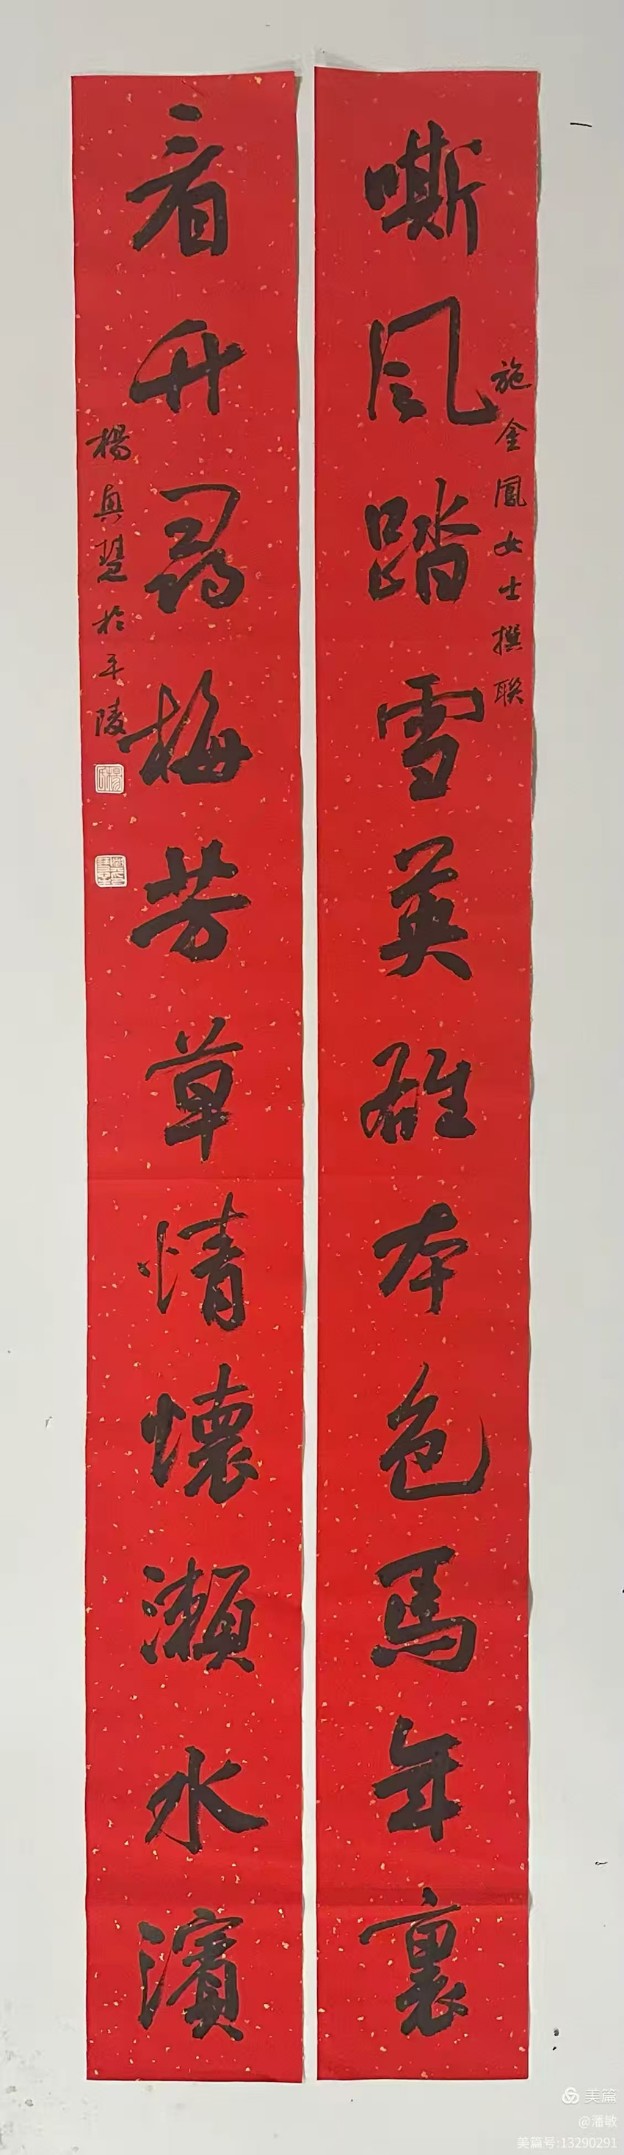 嘶风踏雪英雄本色馬年裏
施金鳳女士撰聯
看竹尋梅芳草情懷瀨水濱
楊真慧於平陵
美篇
@潘敏
美篇号:13290291